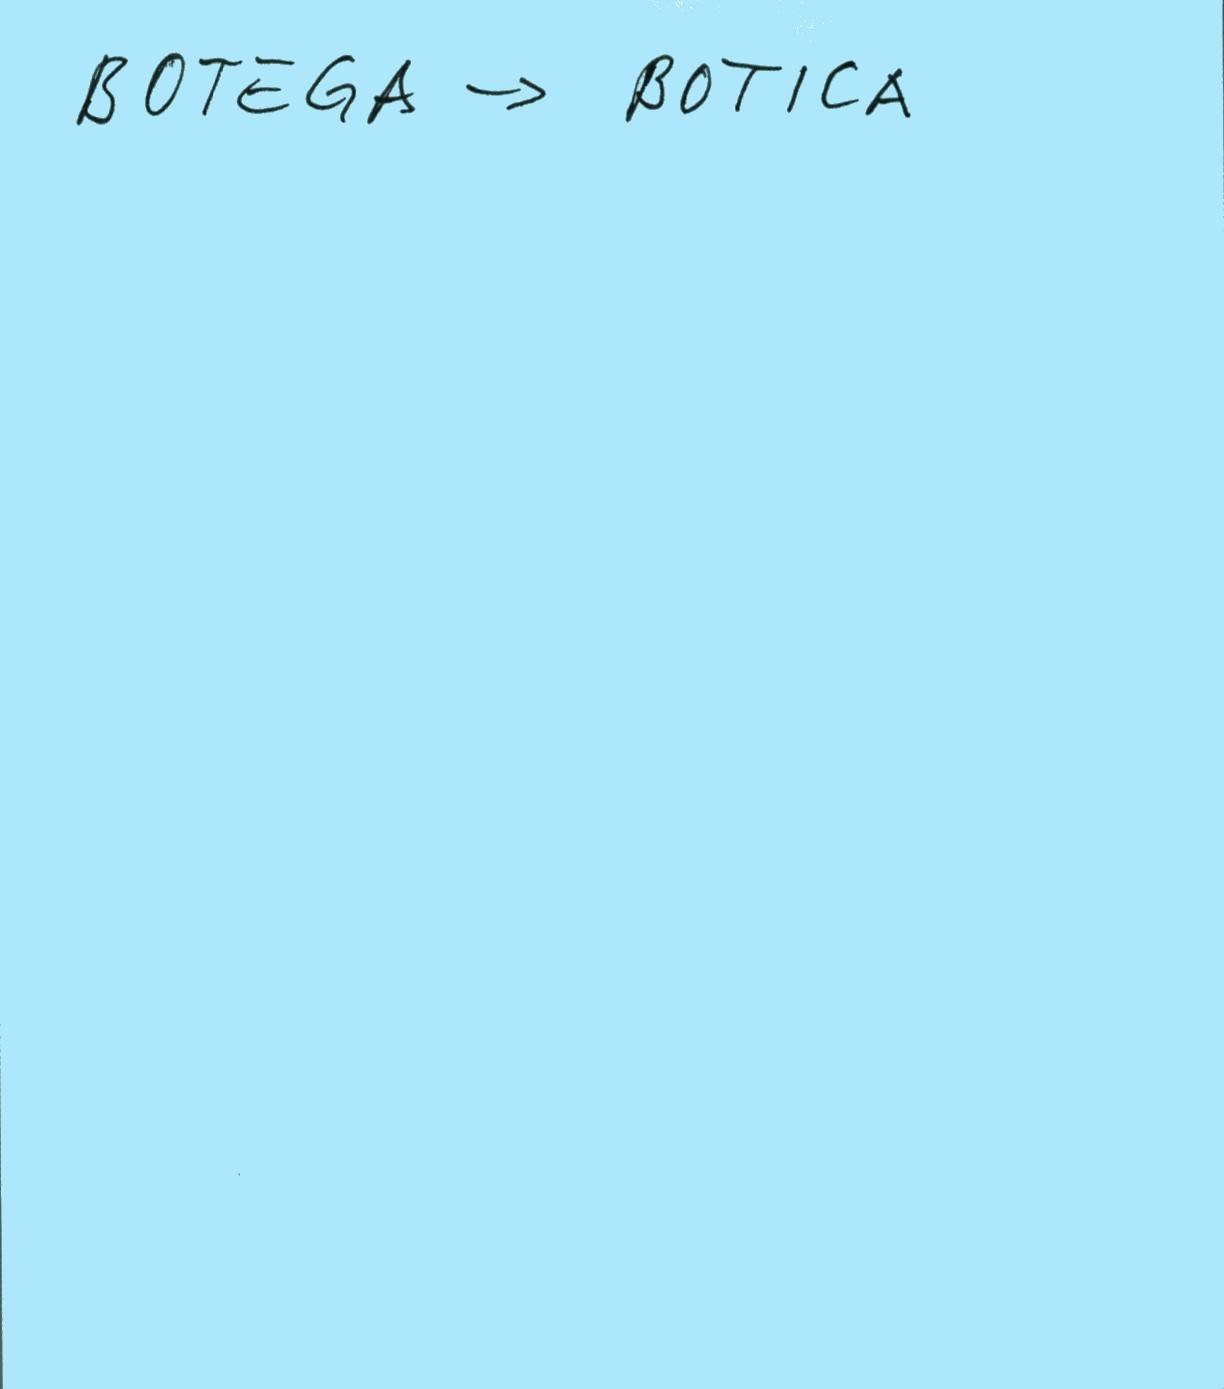 BOTEGA → BOTICA